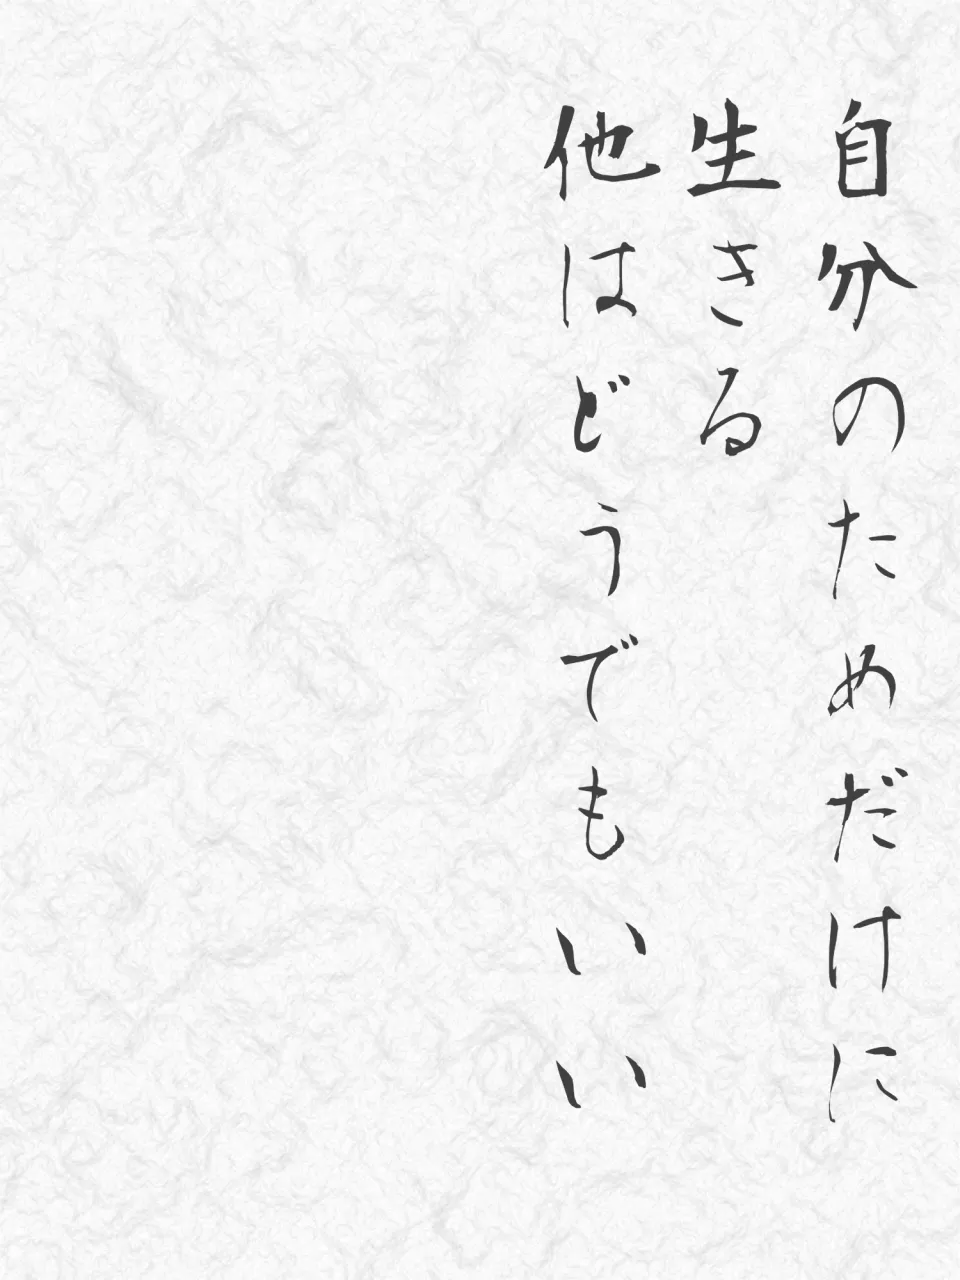 自分のためだけに
生きる
他はどうでもいい